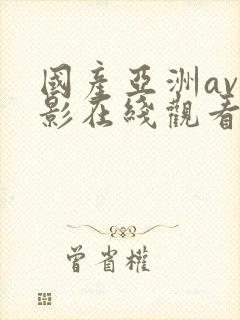 國産亞洲av
影在綫觀看
曾省權